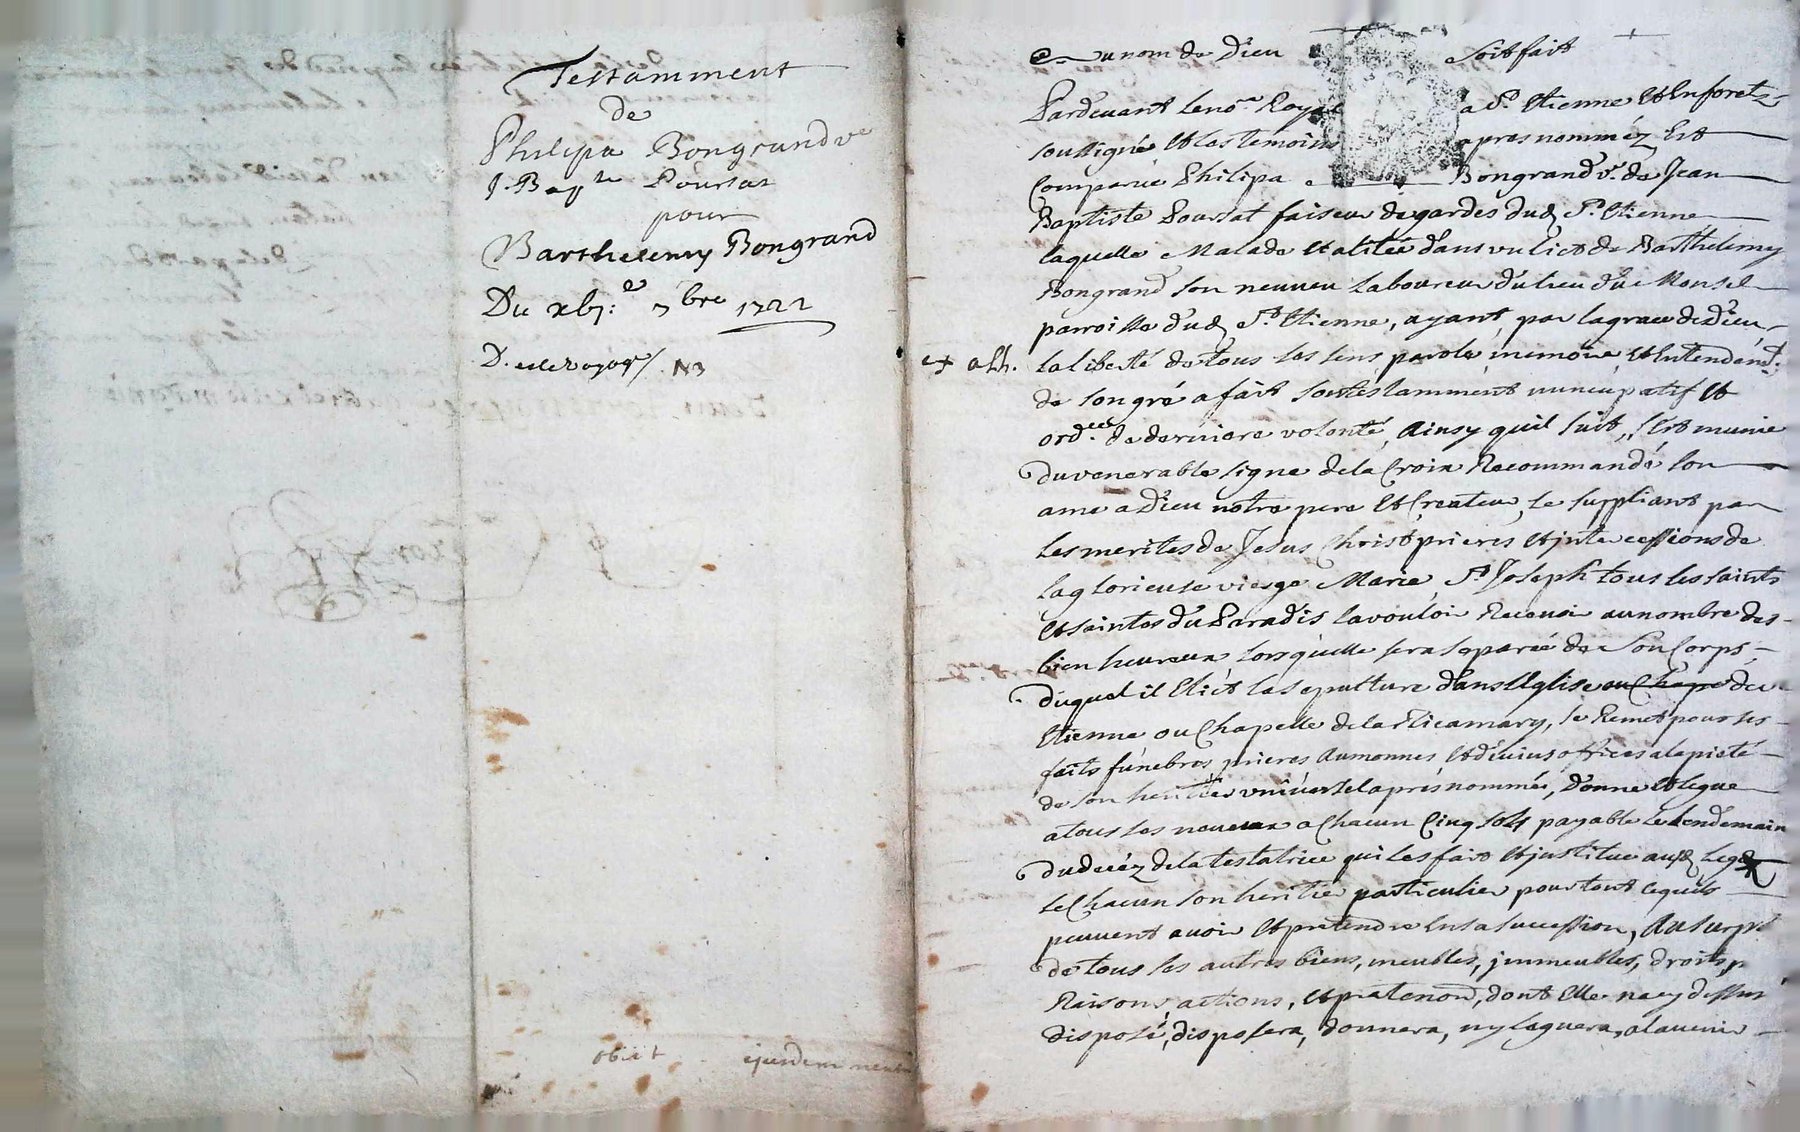 Testamment
de
Philipa Bongrand ve
J. Bapte Poursat
pour
Barthelemy Bongrand
Du xbj: e 7bre 1722
N3
obiit ejusdem
Au nom de Dieu Soit fait
Pardevant le nore Royal a St. Etienne Et Enforetz
soussigné Et les temoins apres nomméz Est
Comparüe Philipa Bongrand ve. de Jean
Baptiste Poursat faiseur de gardes dud St. Etienne
laquelle Malade Et alitée dans vn lict de Barthelemy
Bongrand son neuveu Laboureur du lieu du Monsel
parroisse dud St. Etienne, ayant par la grace de Dieu
la liberté de tous les sens parole memoire Et Entendemt.
de son gré a fait son testamment nuncupatif Et
ordce. de derniere volonté, Ainsy quil suit, s'Est munie
du venerable signe de la Croix Recommandé son
ame a Dieu notre pere Et Createur, le suppliant par
Les merites de Jesus Christ, prieres Et jntercessions de
la glorieuse vierge Marie, St. Joseph tous les saints
Et saintes du Paradis la vouloir Recevoir au nombre des
bien heureux lorsquelle sera separée de Son Corps,
duquel il Elict la sepulture dans l'Eglise ou Chape de
Etienne ou Chapelle de la Ricamary, se Remet pour ses
faits funebres prieres Aumonnes Et divins offices a la pieté
de son heritier vniversel apres nommé, Donne Et legue
a tous ses neveux a Chacun Cinq sols payable le Lendemain
du decéz de la testatrice qui les fait Et jnstitue aud legat
le Chacun son heritier particulier pour tout ce quils
peuvent avoir Et pretendre En sa succession, Au surplus
de tous ses autres biens, meubles, jmmeubles, droits,
Raisons, actions, Et pretentions, dont Elle na cy dessus
disposé, disposera, donnera, ny leguera, a lavenir